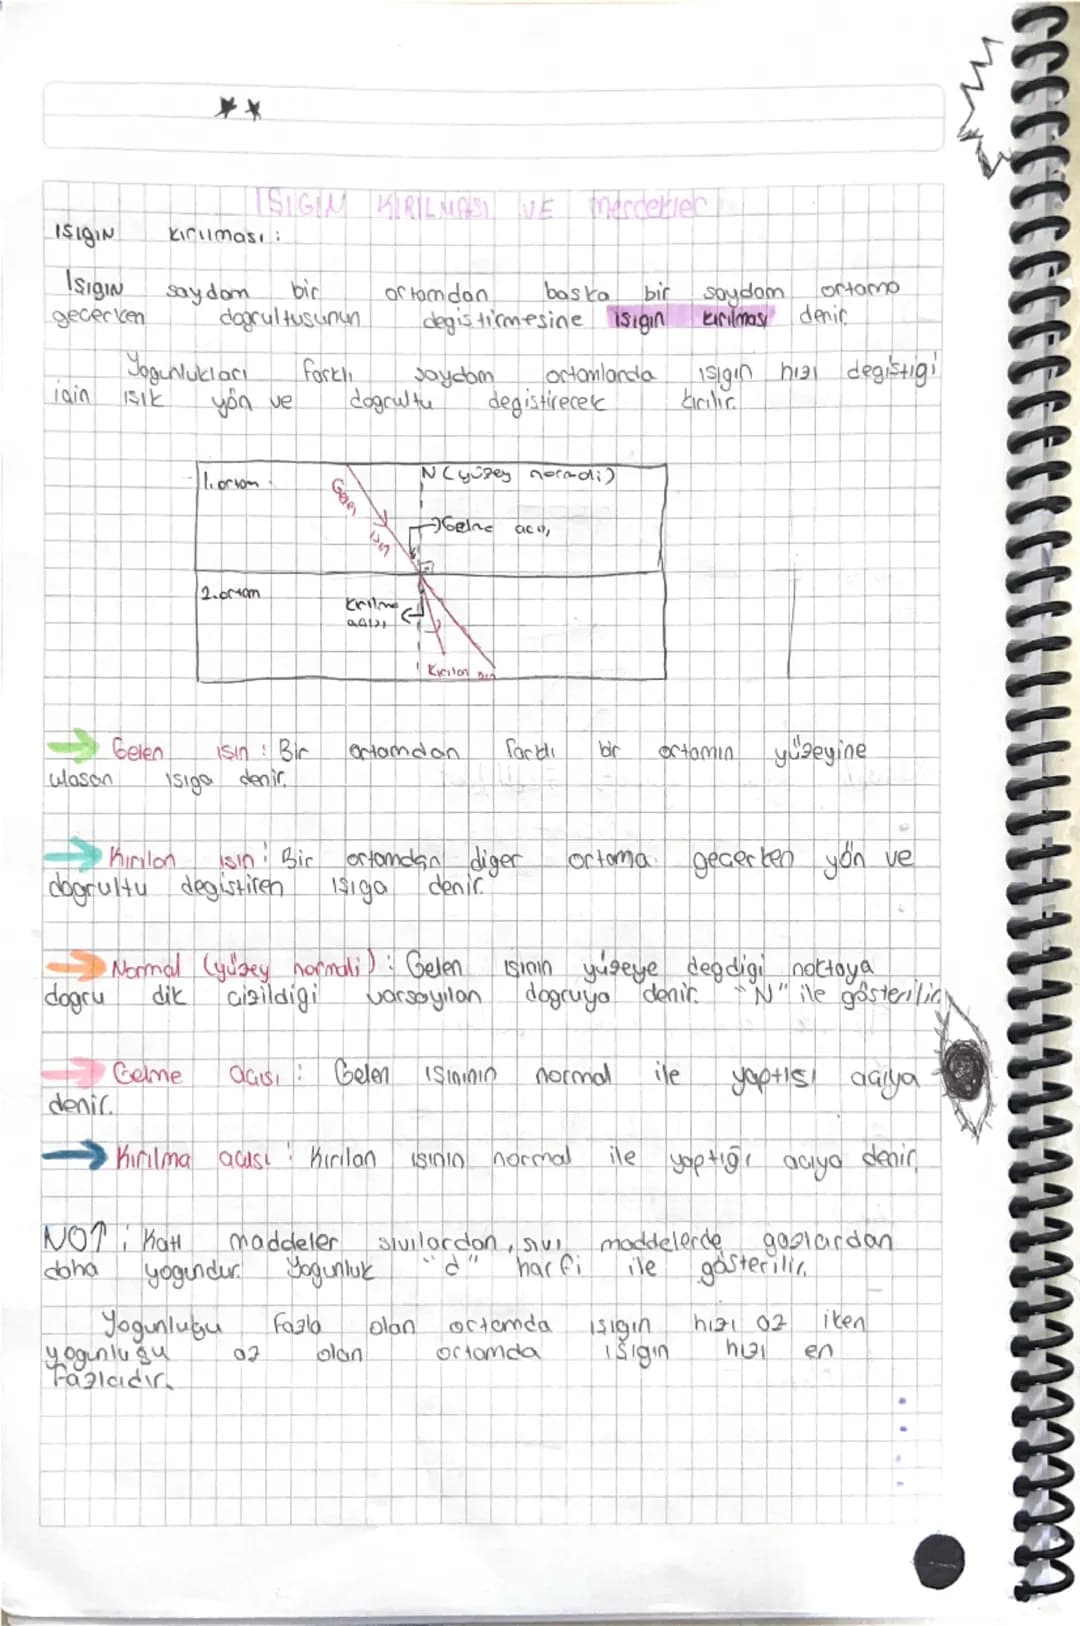 IŞIGIN KIRILMASI VE mercekler
IŞIGIN kırılması :
Işıgın saydam bir ortamdan baska bir saydam ortama
gecerken dogrultusunun degistirmesine ısıgın kırılması denir.
Yogunlukları farklı saydam ortamlarda ışıgın hızı degiştigi
için ısık yön ve dogrultu degistirecek kırılır.
1.ortam
N (yüzey normali)
Gelen ışın
Gelme acısı
2.ortam
Kırılma
acısı
Kırılan ışın
→ Gelen ışın : Bir ortamdan farklı bir ortamın yüzeyine
ulasan ısıga denir.
→ Kırılan ışın : Bir ortamdan diger ortama gecerken yön ve
dogrultu degistiren ışıga denir.
→ Normal (yüzey normali) : Gelen ışının yüzeye degdigi noktaya
dogru dik cizildigi varsayılan dogruya denir. "N" ile gösterilir.
→ Gelme acısı : Gelen ışınının normal ile yaptısı açıya
denir.
→ Kırılma acısı : Kırılan ışının normal ile yaptığı acıya denir.
NOT : Katı maddeler sıvılardan, sıvı maddelerde gazlardan
daha yogundur. Yogunluk "d" harfi ile gösterilir.
Yogunlugu fazla olan ortamda ışıgın hızı az iken
yogunlugu az olan ortamda ışıgın hızı en
fazladır.